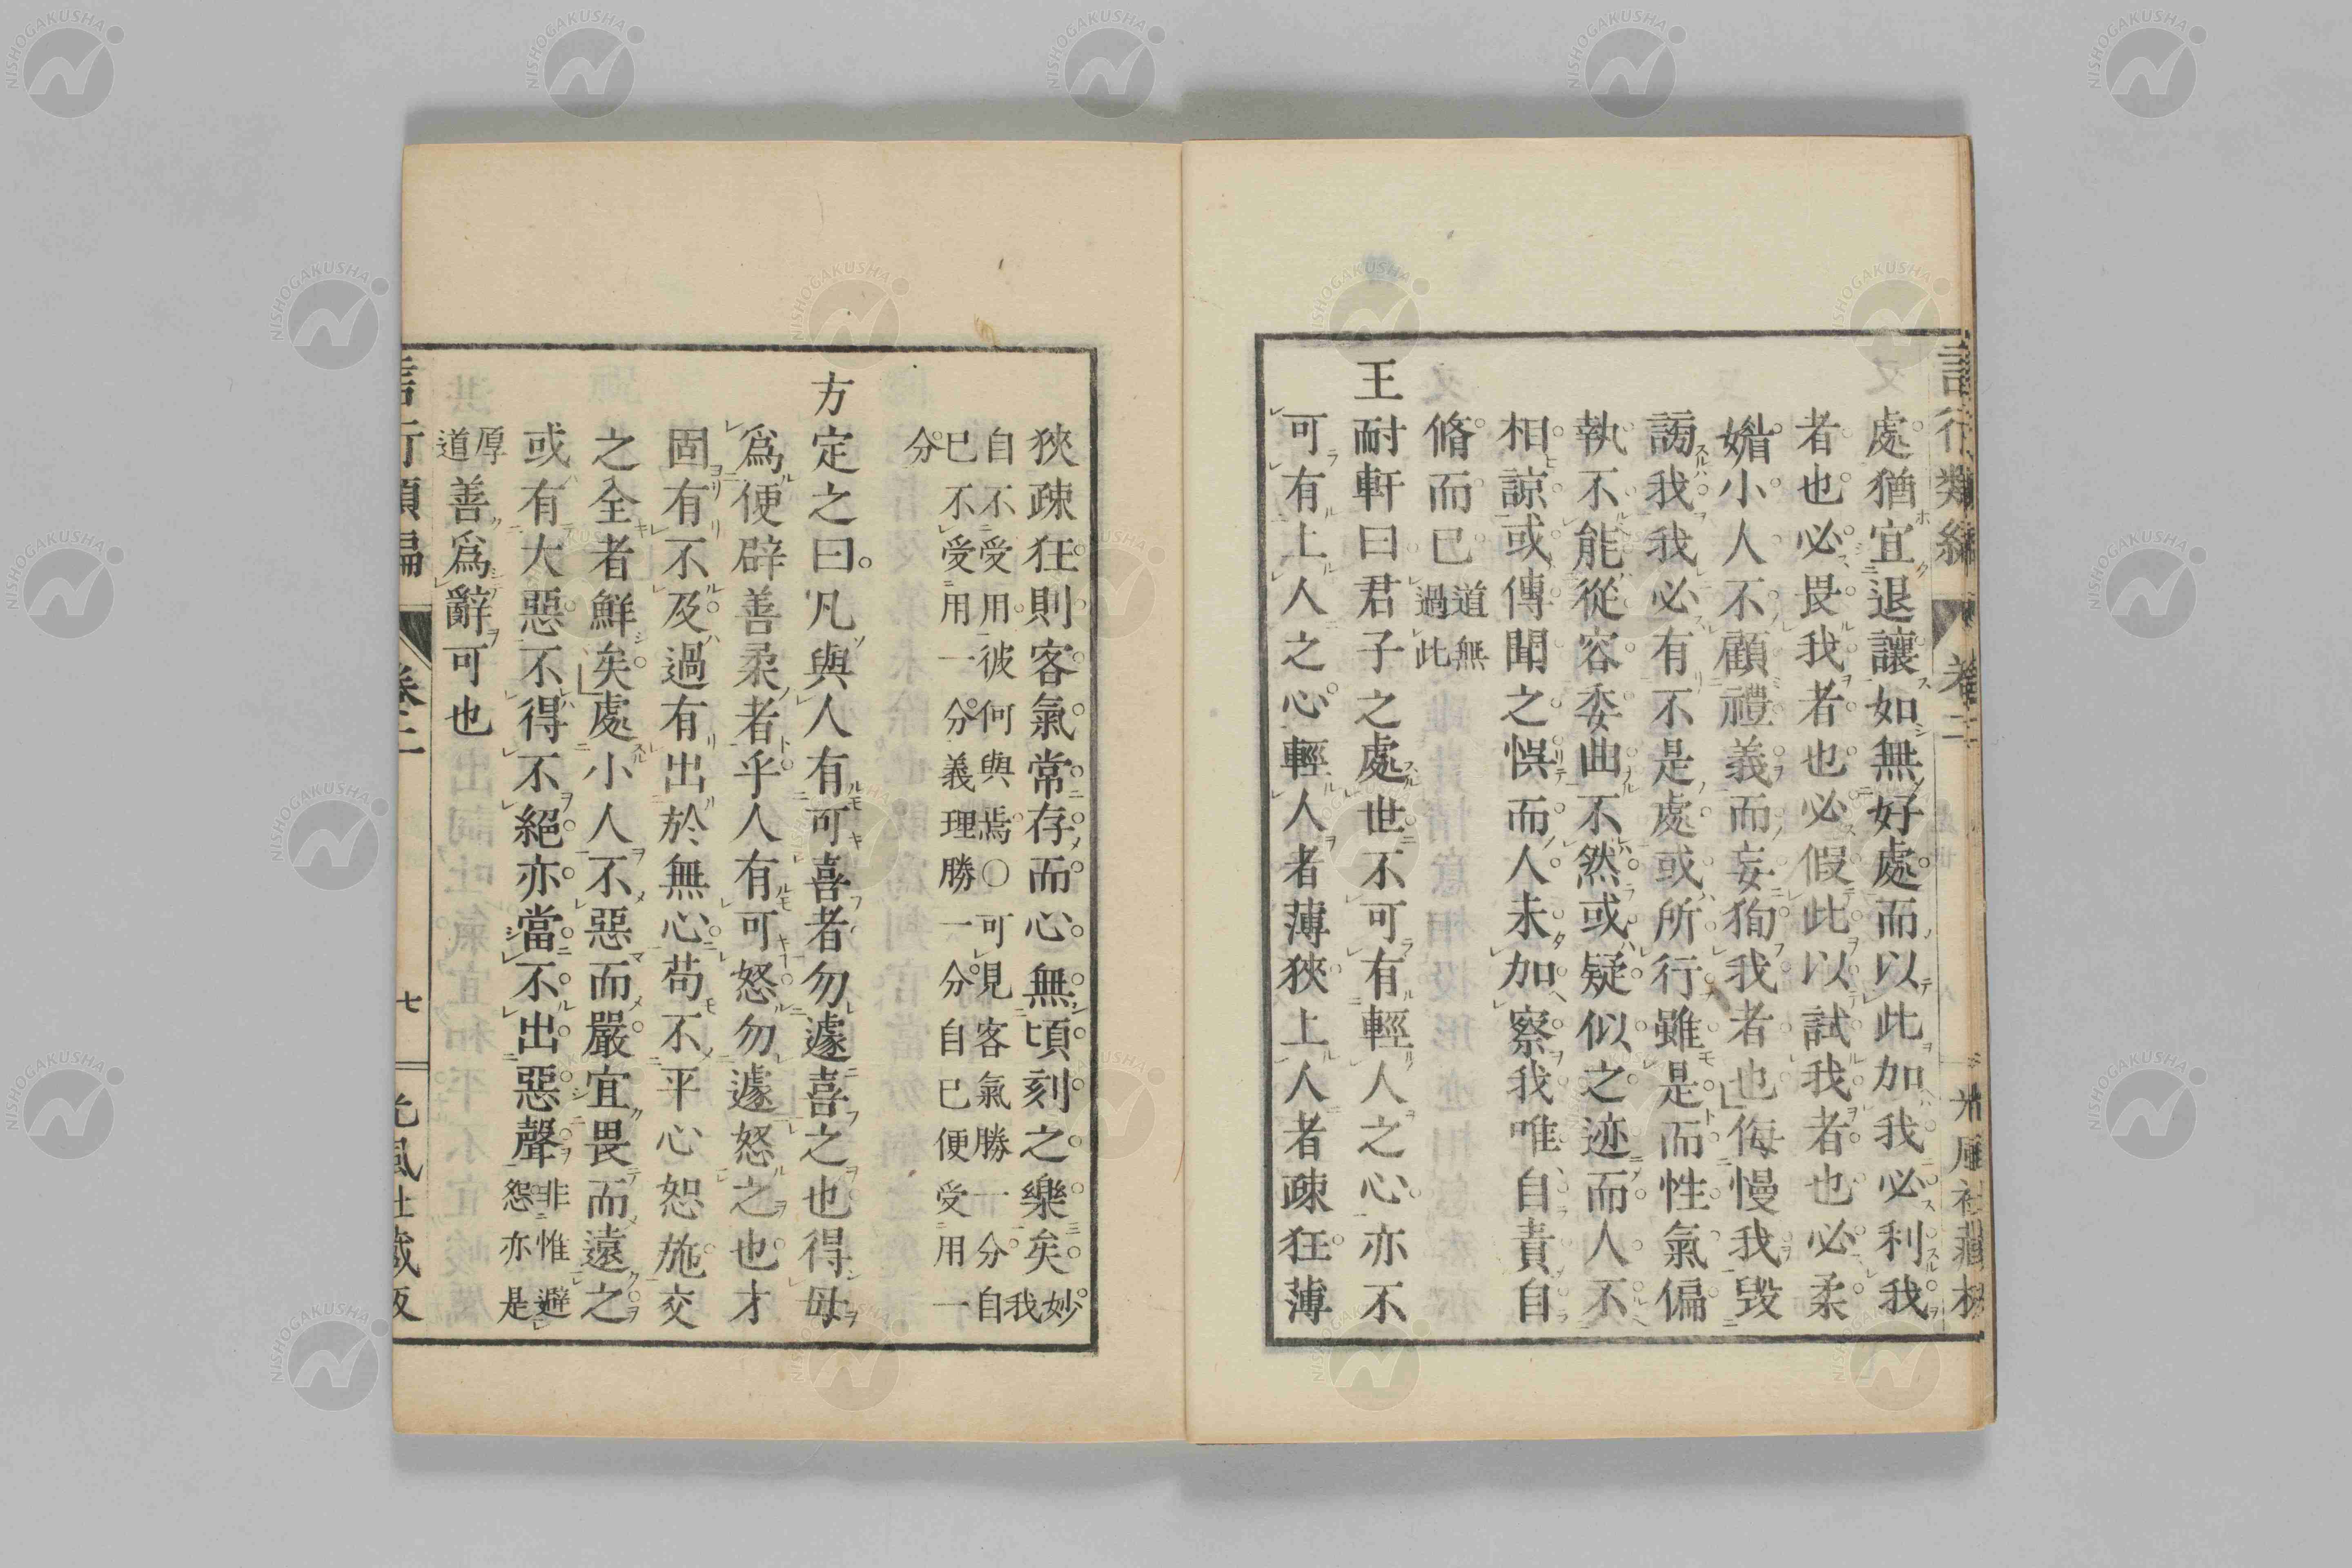 處猶宜退讓如無好處而以此加我必利我
者也必畏我者也必假此以試我者也必柔
媚小人不顧禮義而妄狥我者也侮慢我毀
謗我我必有不是處或所行雖是而性氣偏
執不能從容委曲不然或疑似之迹而人不
相諒或傳聞之悞而人未加察我唯自責自
脩而已道無過此
王耐軒曰君子之處世不可有輕人之心亦不
可有上人之心輕人者薄狹上人者疎狂薄
狹疎狂則客氣常存而心無頃刻之樂矣妙我
自不受用彼何與焉○可見客氣勝一分自
已不受用一分義理勝一分自已便受用一
分
方定之曰凡與人有可喜者勿遽喜之也得毋
爲便辟善柔者乎人有可怒勿遽怒之也才
固有不及過有出於無心苟不平心恕施交
之全者鮮矣處小人不惡而嚴宜畏而遠之
或有大惡不得不絕亦當不出惡聲非惟避怨亦是
厚道善爲辭可也
卷二
七